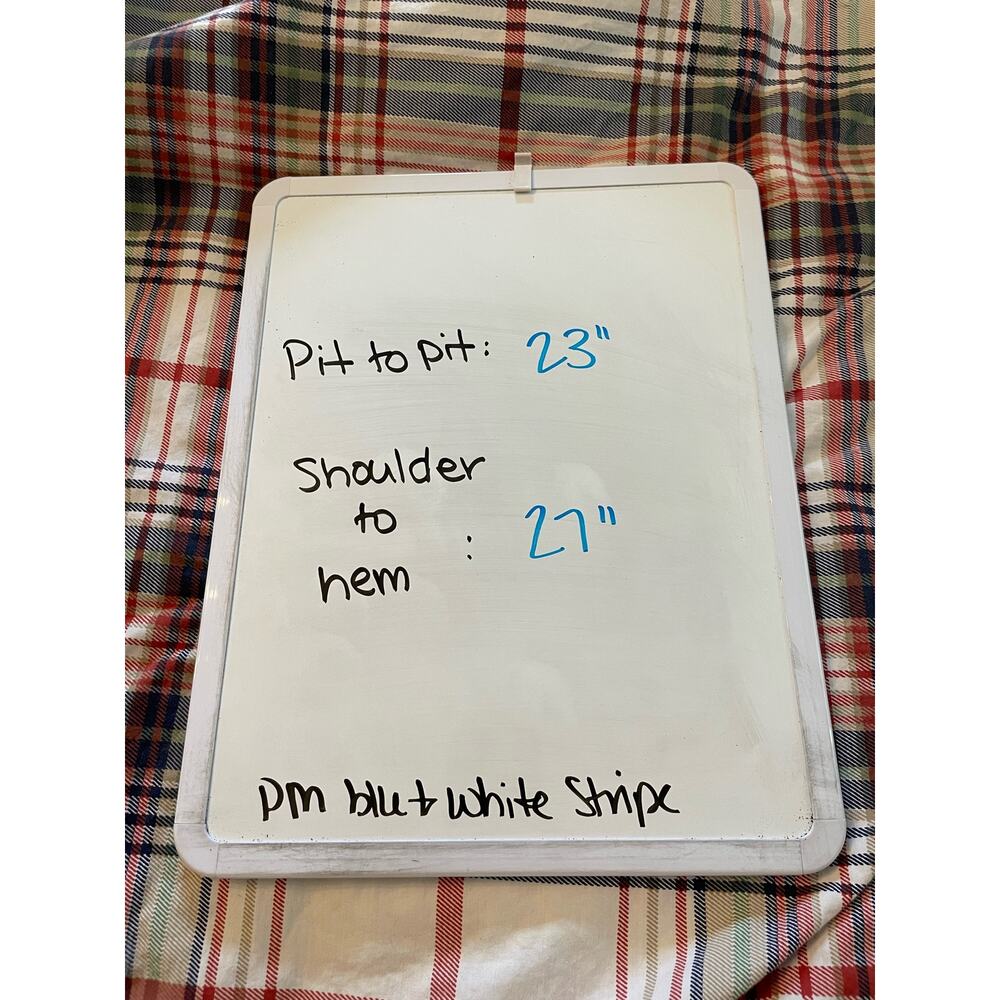 Pit to pit: 23"
Shoulder
to
hem : 27"
PM blu + White Stripe